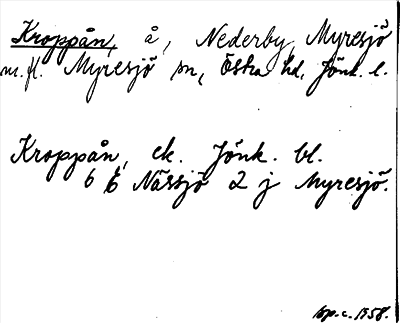 Kroppån, å, Nederby, Myresjö
m.fl. Myresjö sn, Östra hd, Jönk. l.
Kroppån, ek. Jönk. bl.
6 E Nässjö 2 j Myresjö.
1958.